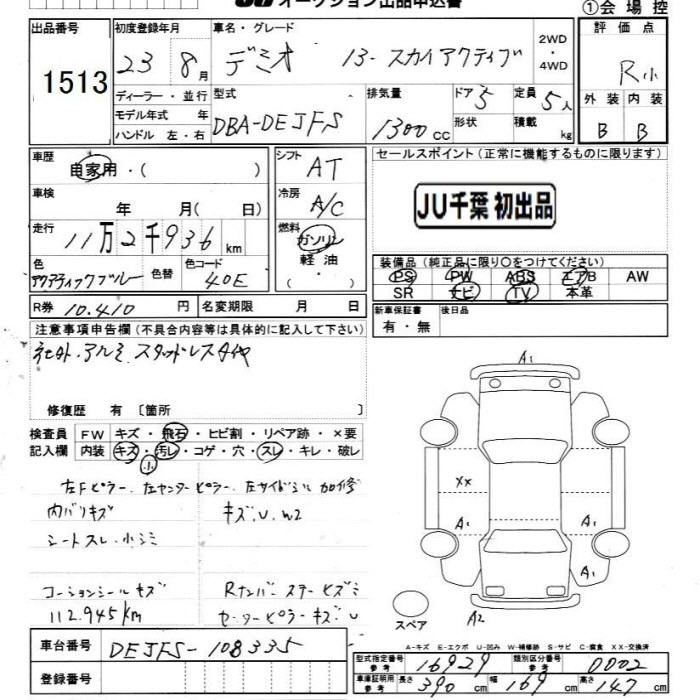 JU オークション出品申込書
①会場控
出品番号
1513
初度登録年月
23 8月
車名・グレード
デミオ 13-スカイアクティブ
2WD
・
4WD
評価点
R小
外装 内装
B B
ディーラー・並行
モデル年式 年
ハンドル 左・右
型式
DBA-DEJFS
排気量
1300 cc
ドア 5
形状
定員 5人
積載 kg
車歴
自家用・( )
シフト
AT
セールスポイント(正常に機能するものに限ります)
JU千葉 初出品
車検
年 月( 日)
冷房
A/C
走行
11万2千936 km
燃料
ガソリン
軽油
・( )
色
アクアティックブルー
色替
色コード
40E
装備品(純正品に限り○をつけてください)
PS PW ABS エアB AW
SR ナビ TV 本革
R券 10.410 円
名変期限 月 日
新車保証書
有・無
後日品
注意事項申告欄(不具合内容等は具体的に記入して下さい)
社外アルミ スタッドレスタイヤ
修復歴 有 〔箇所 〕
検査員
記入欄
FW キズ・飛石・ヒビ割・リペア跡・×要
内装 キズ・汚レ・コゲ・穴・スレ・キレ・破レ
小
左Fピラー、左センターピラー、左サイドシル 加修
内バリキズ
キズ、U、W2
シートスレ、小シミ
コーションシールキズ
112.945km
Rナンバーステーヒズミ
センターピラーキズ、U
A1
XX
A1
A1
A1
A2
スペア
A-キズ E-エクボ U-凹み W-補修跡 S-サビ C-腐食 XX-交換済
車台番号
DEJFS-108335
登録番号
型式指定番号
参考
16929
類別区分番号
参考
0002
車庫証明用
参考
長さ 390 cm
幅 169 cm
高さ 147 cm